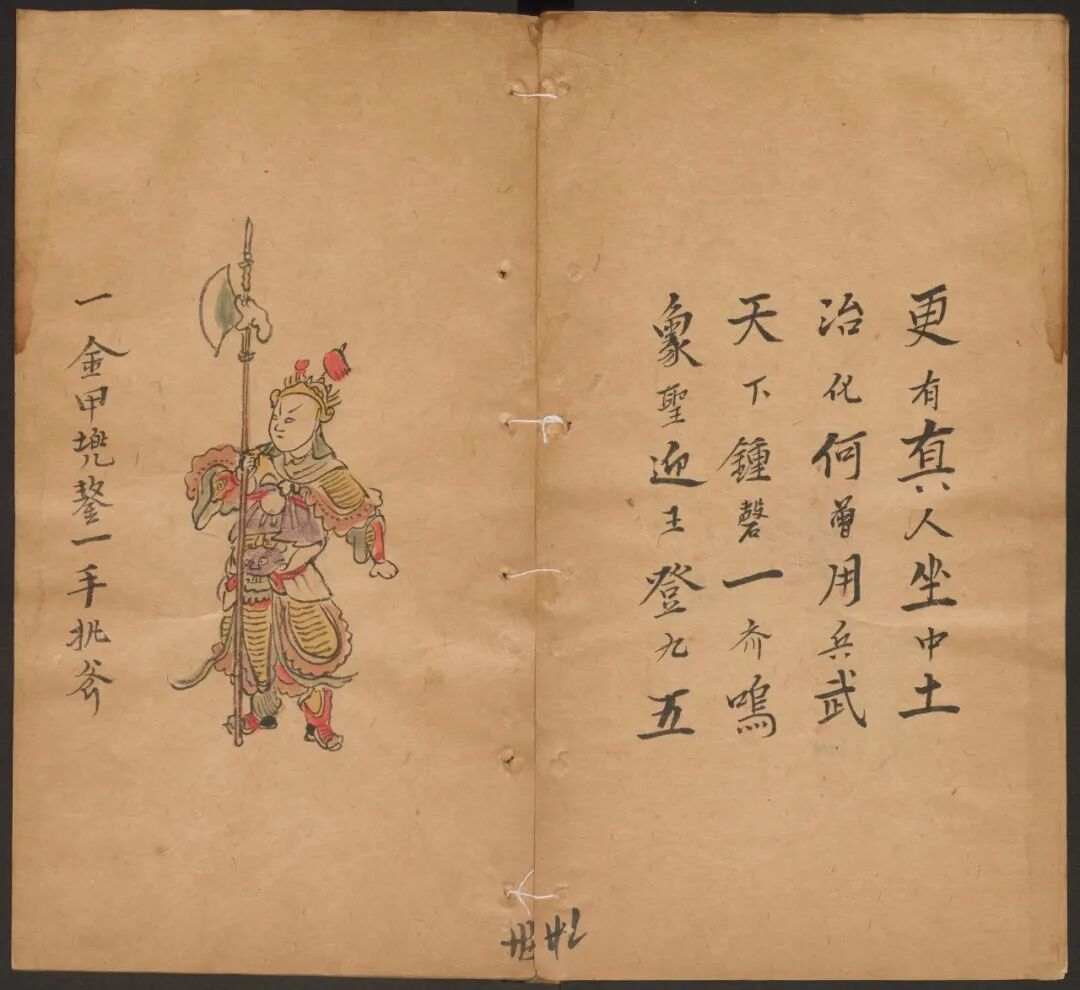 更有真人坐中土
治化何曾用兵武
天下鍾磬一齐鳴
象聖迎王登九五
一金甲兠鍪一手执斧